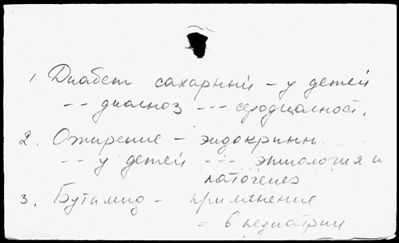 1. Диабет сахарный – у детей
-- диагноз ---
2. Ожирение – эндокринн.
-- у детей --- этиология и
патогенез
3. Бутамид – применение
= в педиатрии